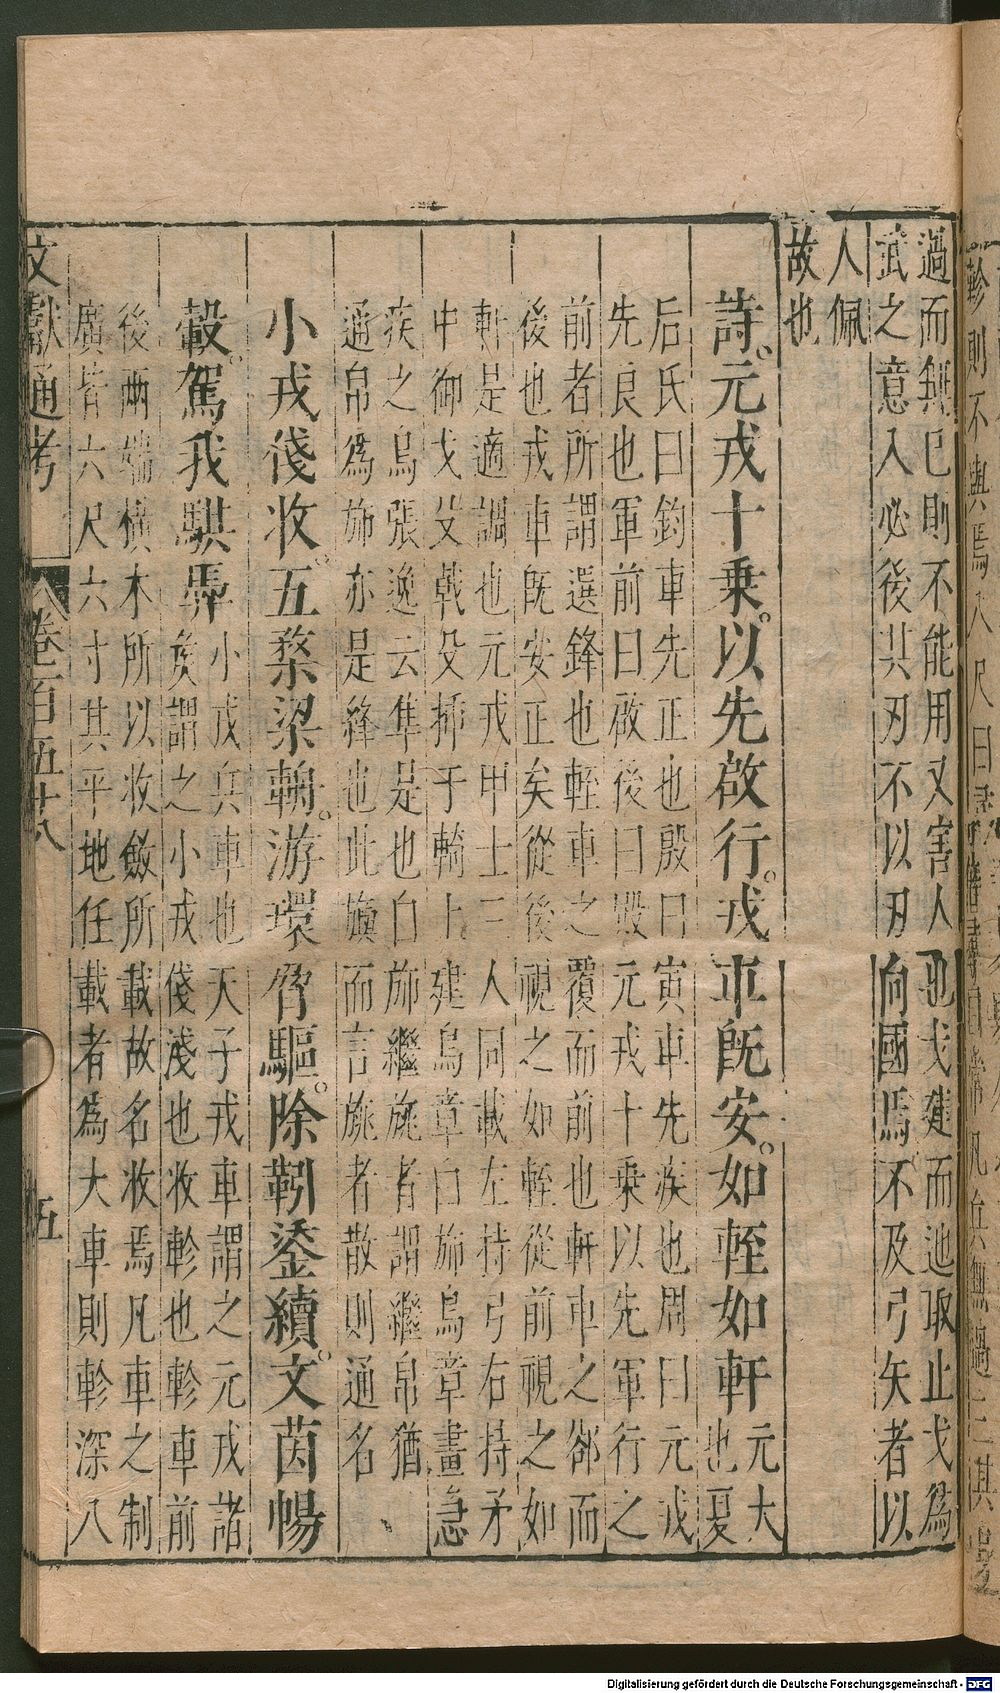 過而無已則不能用又害人也戈建而迆取止戈爲
武之意入必後其刃不以刃向國焉不及弓矢者以
人佩
故也
詩。元戎十乗。以先啟行。戎車既安。如輊如軒
元大
也夏
后氏曰鈎車先正也殷曰寅車先疾也周曰元戎
先良也軍前曰啟後曰殿元戎十乗以先軍行之
前者所謂選鋒也輊車之覆而前也軒車之郤而
後也戎車既安正矣從後視之如輊從前視之如
軒是適調也元戎甲士三人同載左持弓右持矛
中御戈殳戟殳揷于輢上建鳥章白斾鳥章畫急
疾之鳥張逸云隼是也白斾繼旐者謂繼帛猶
通帛爲斾亦是絳也此旟而言旐者散則通名
小戎俴收。五楘梁輈。游環脅驅。隂靷鋈續。文茵暢
轂。駕我騏馵
小戎兵車也天子戎車謂之元戎諸
矦謂之小戎俴淺也收軫也軫車前
後兩端横木所以收斂所載故名收焉凡車之制
廣皆六尺六寸其平地任載者爲大車則軫深八
文獻通考
卷一百五十八
五
Digitalisierung gefördert durch die Deutsche Forschungsgemeinschaft - DFG